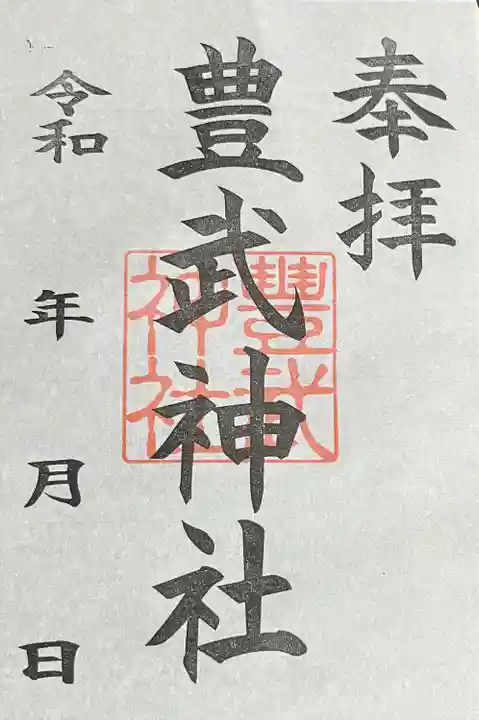 奉拝
豊武神社
豊武
神社
令和 年 月 日